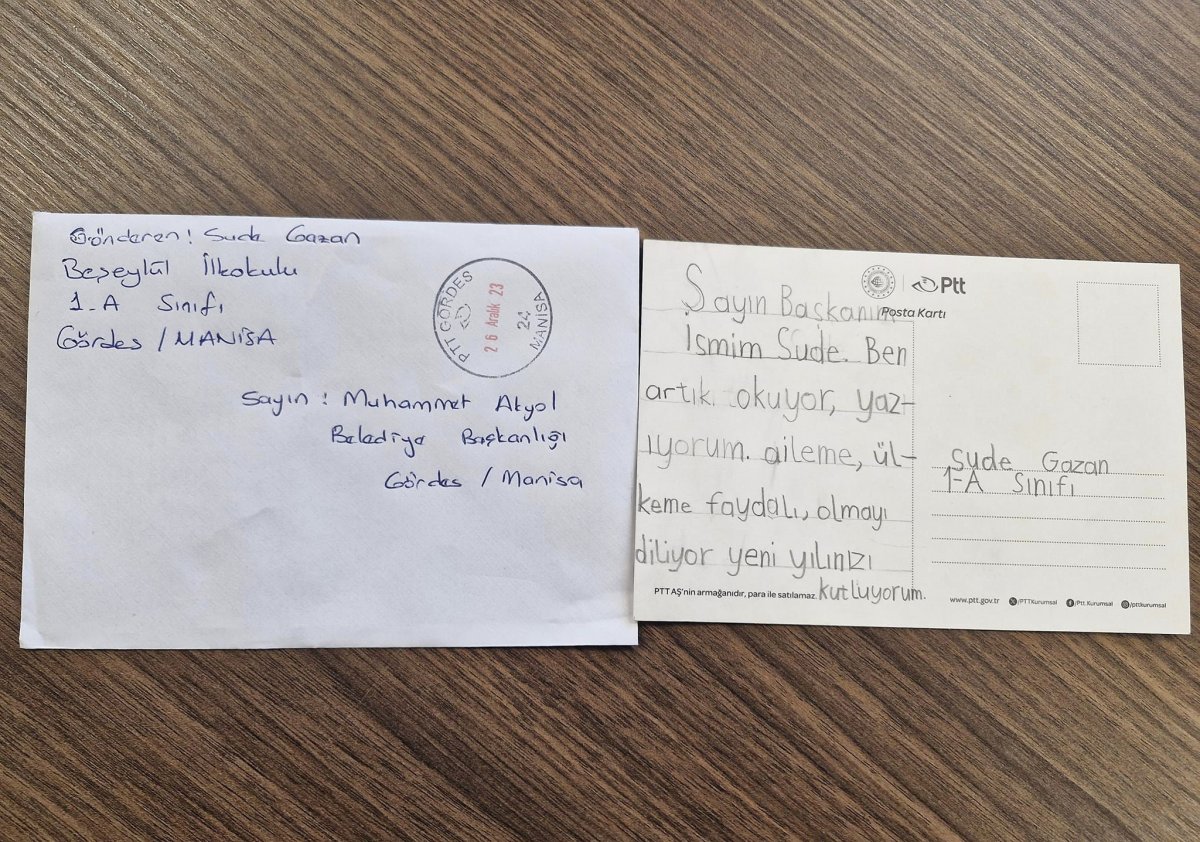 Gönderen: Sude Gazan
Beşeylül İlkokulu
1-A Sınıfı
Gördes / MANİSA
PTT GÖRDES
26 Aralık 23
24
MANİSA
Sayın : Muhammet Akyol
Belediye Başkanlığı
Gördes / Manisa
Ptt
Posta Kartı
Sayın Başkanım
İsmim Sude. Ben
artık okuyor, yaz-
ıyorum. aileme, ül-
keme faydalı, olmayı
diliyor yeni yılınızı
kutluyorum.
Sude Gazan
1-A Sınıfı
PTT AŞ'nin armağanıdır, para ile satılamaz.
www.ptt.gov.tr /PTTKurumsal /Ptt.Kurumsal /pttkurumsal